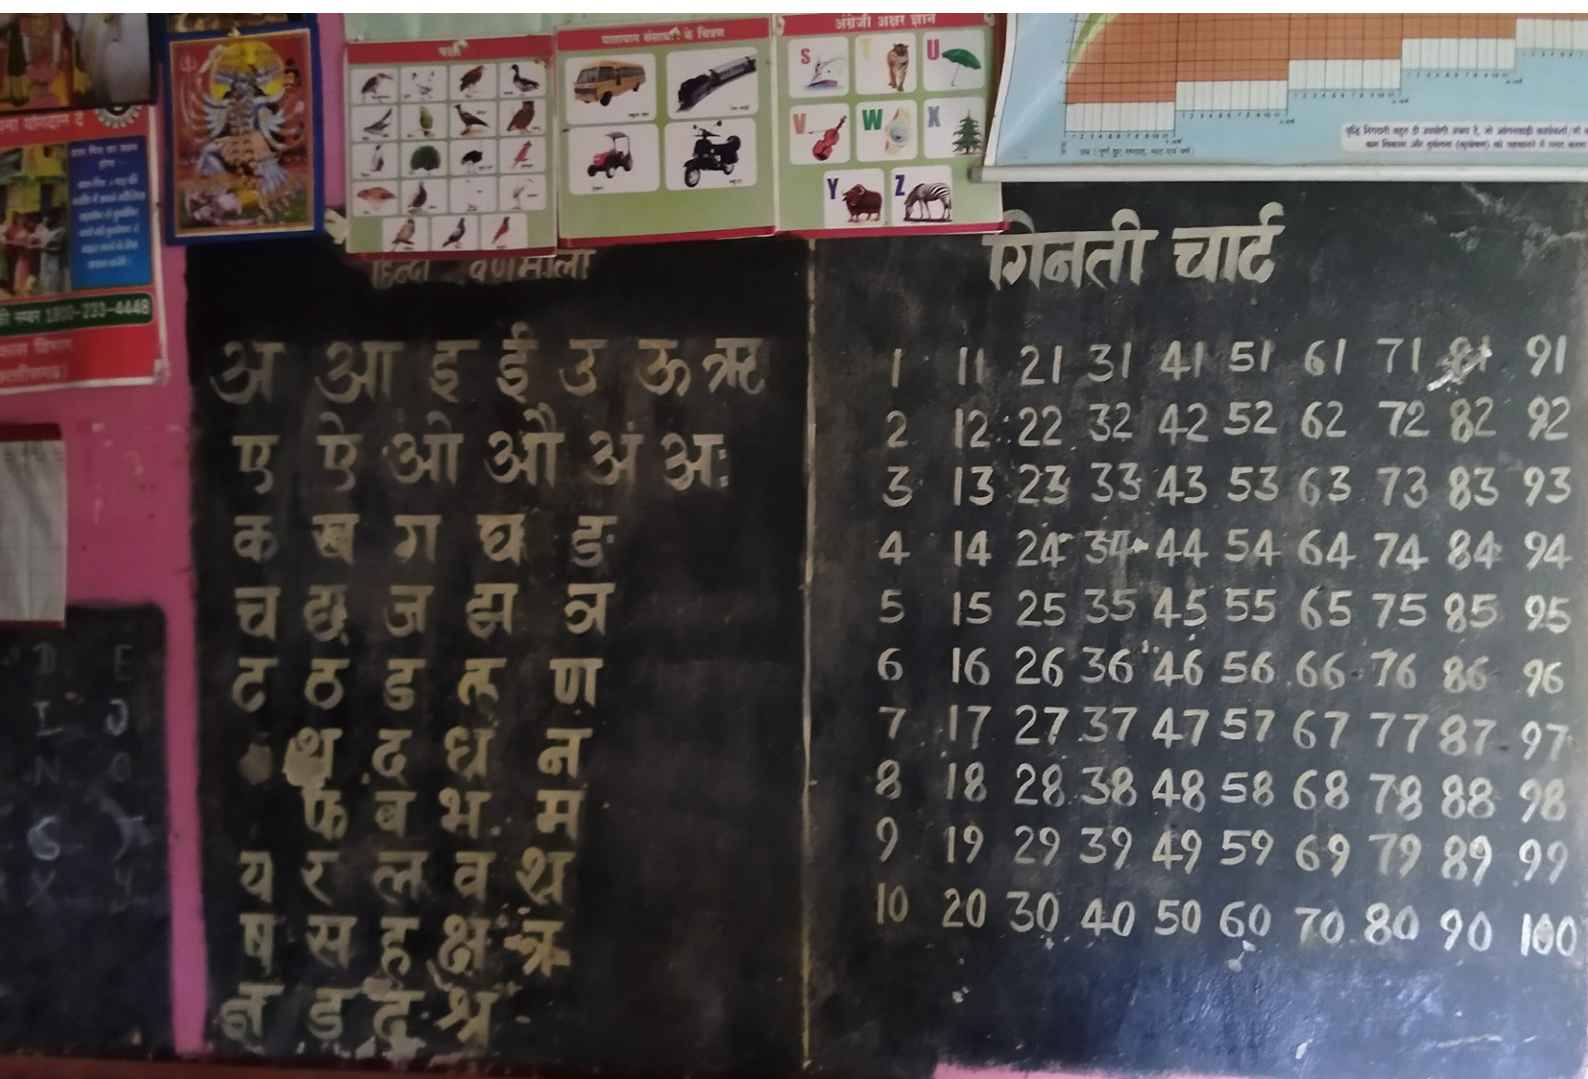 पक्षी
यातायात संसाधनों के चित्रण
अंग्रेजी अक्षर ज्ञान
S T U
V W X
Y Z
नम्बर 1800-233-4448
हिन्दी वर्णमाला
अ आ इ ई उ ऊ ऋ
ए ऐ ओ औ अं अः
क ख ग घ ङ
च छ ज झ ञ
ट ठ ड ण
थ द ध न
फ ब भ म
य र ल व श
ष स ह क्ष त्र
ज्ञ ड ढ श्र
गिनती चार्ट
1 11 21 31 41 51 61 71 81 91
2 12 22 32 42 52 62 72 82 92
3 13 23 33 43 53 63 73 83 93
4 14 24 34 44 54 64 74 84 94
5 15 25 35 45 55 65 75 85 95
6 16 26 36 46 56 66 76 86 96
7 17 27 37 47 57 67 77 87 97
8 18 28 38 48 58 68 78 88 98
9 19 29 39 49 59 69 79 89 99
10 20 30 40 50 60 70 80 90 100
D E
I J
N O
X Y